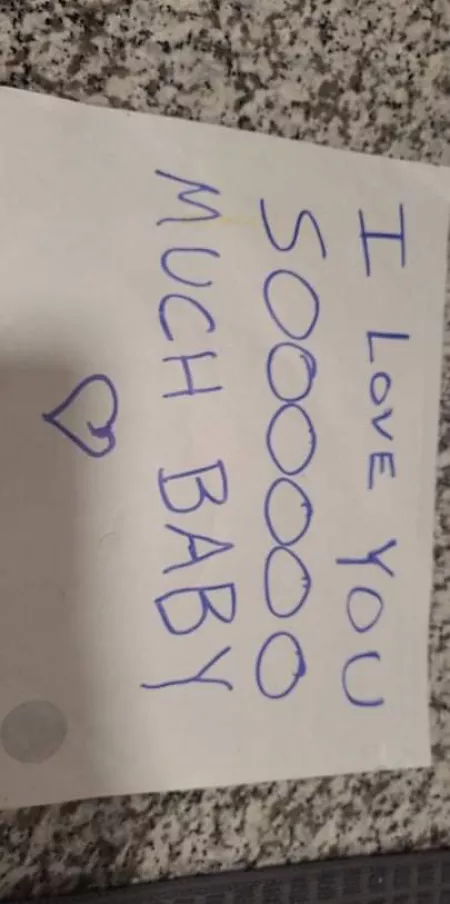 I LOVE YOU
SOOOOOO
MUCH BABY